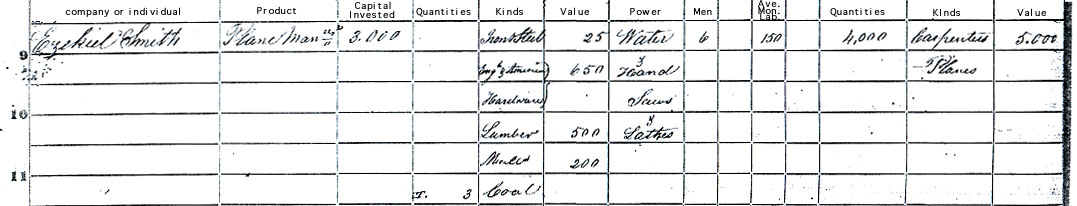 company or individual Product Capital Invested Quantities Kinds Value Power Men Ave. Mon. Lab. Quantities KInds Value
Ezekiel Smith Plane Manuf 3.000 Iron & Steel 25 Water 6 150 4,000 Carpenters 5.000
9 Engl & American 650 & Hand Planes
10 Hardware Saws
Lumber 500 & Lathes
11 200
T. 3 Coal